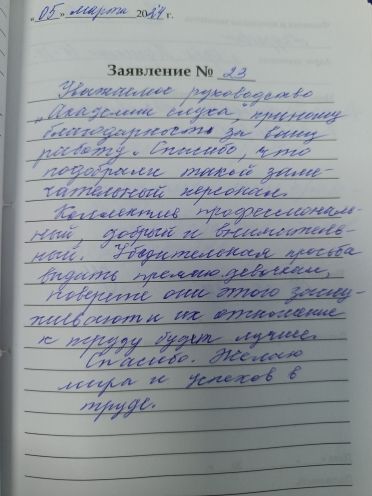 „05„ марта 2024 г.
Заявление № 23
Уважаемое руководство
„Академии слуха", приношу
благодарность за вашу
работу. Спасибо, что
подобрали такой заме-
чательный персонал.
Коллектив профессиональ-
ный добрый и вниматель-
ный. Убедительная просьба
видать премию девочкам,
поверьте они этого заслу-
живают и их отношение
к труду будет лучше.
Спасибо. Желаю
мира и успехов в
труде.